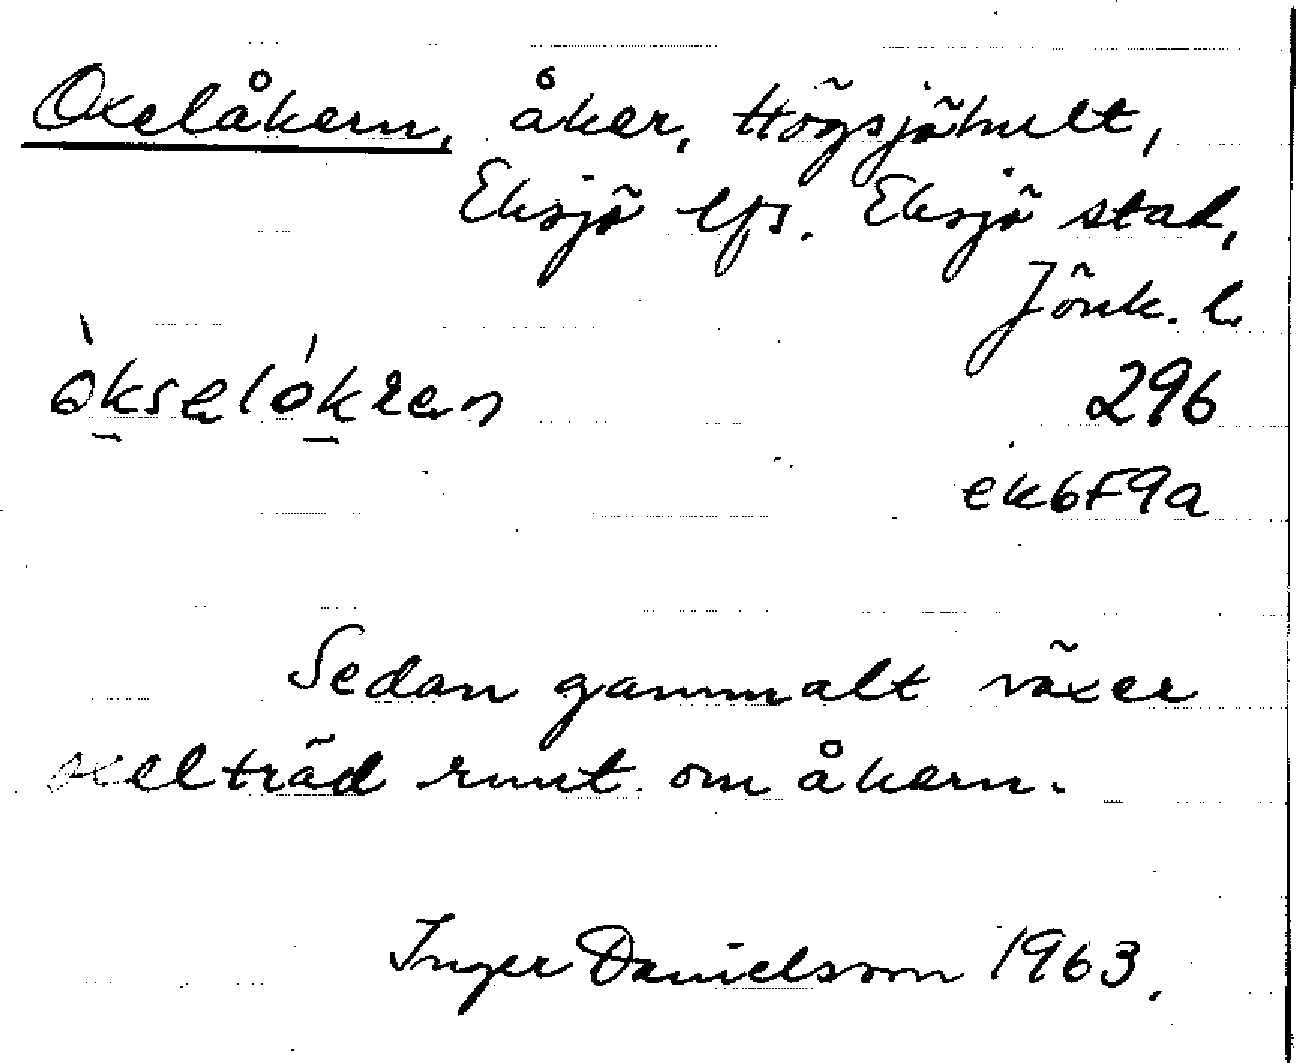 Oxelåkern, åker, Högsjöhult,
Eksjö lfs. Eksjö stad,
Jönk. l.
òksel ókren
296
ek6F9a
Sedan gammalt växer
oxelträd runt om åkern.
Inger Danielsson 1963.